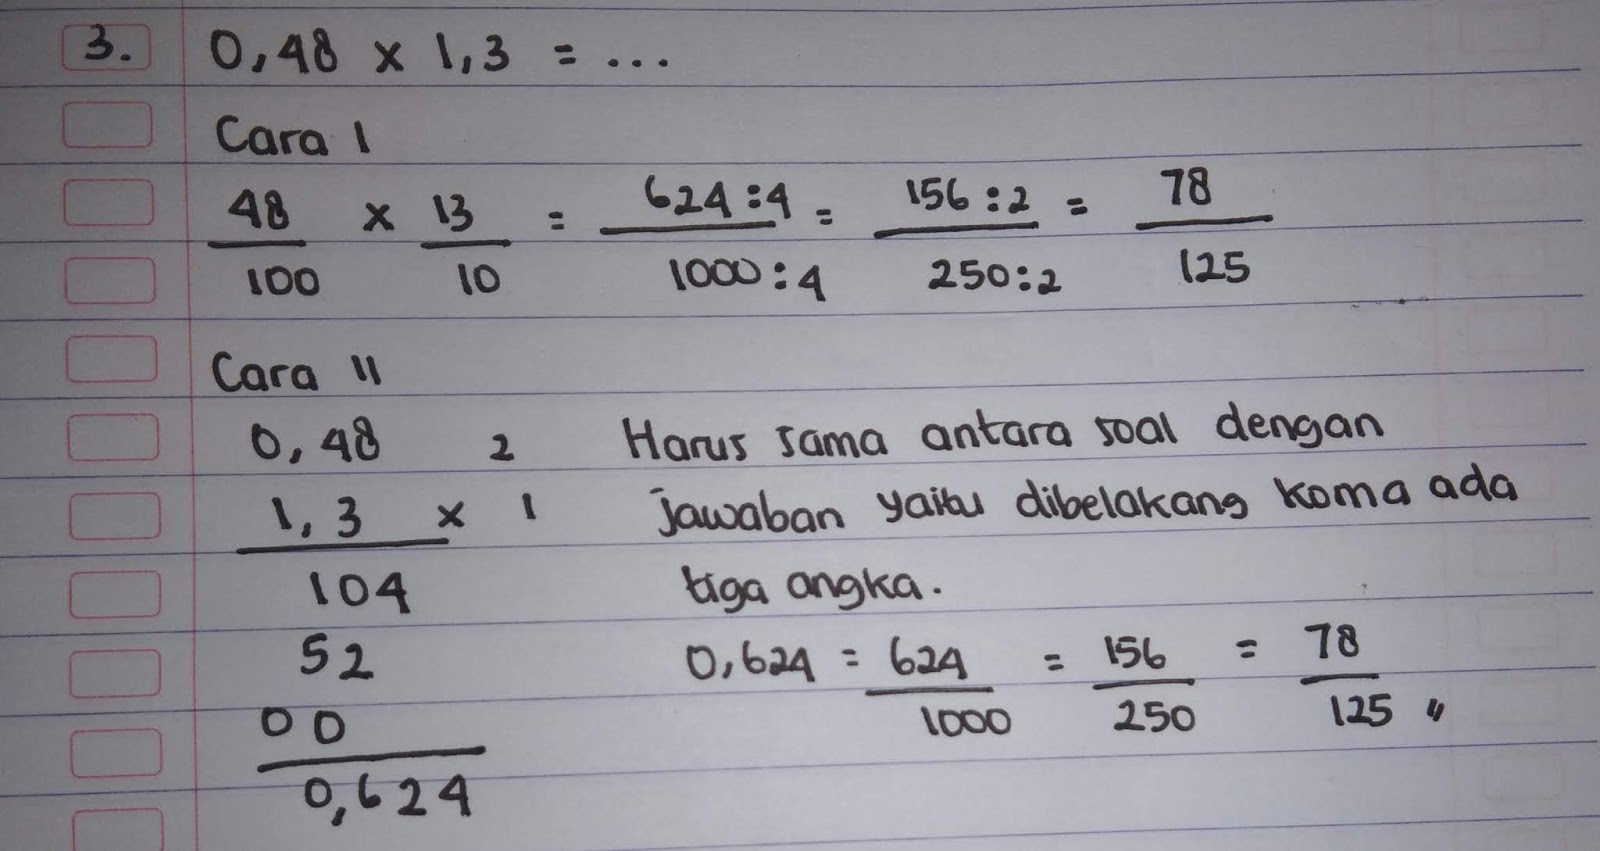 3. 0,48 x 1,3 = ...
Cara I
48/100 x 13/10 = 624:4/1000:4 = 156:2/250:2 = 78/125
Cara II
0,48 2 Harus sama antara soal dengan
1,3 x 1 jawaban yaitu dibelakang koma ada
104 tiga angka.
52 0,624 = 624/1000 = 156/250 = 78/125 "
00
0,624